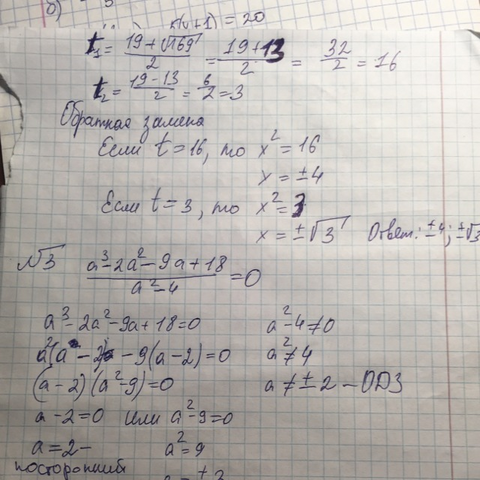 б)
x(x+1) = 20
t₁ = (19+√169)/2 = (19+13)/2 = 32/2 = 16
t₂ = (19-13)/2 = 6/2 = 3
Обратная замена
Если t=16, то x² = 16
x = ±4
Если t = 3, то x² = 3
x = ±√3 Ответ: ±4; ±√3
№3 (a³-2a²-9a+18)/(a²-4) = 0
a³-2a²-9a+18=0 a²-4≠0
a²(a-2) -9(a-2)=0 a²≠4
(a-2)(a²-9)=0 a≠±2 - ОДЗ
a-2=0 или a²-9=0
a=2- a²=9
посторонний a=±3